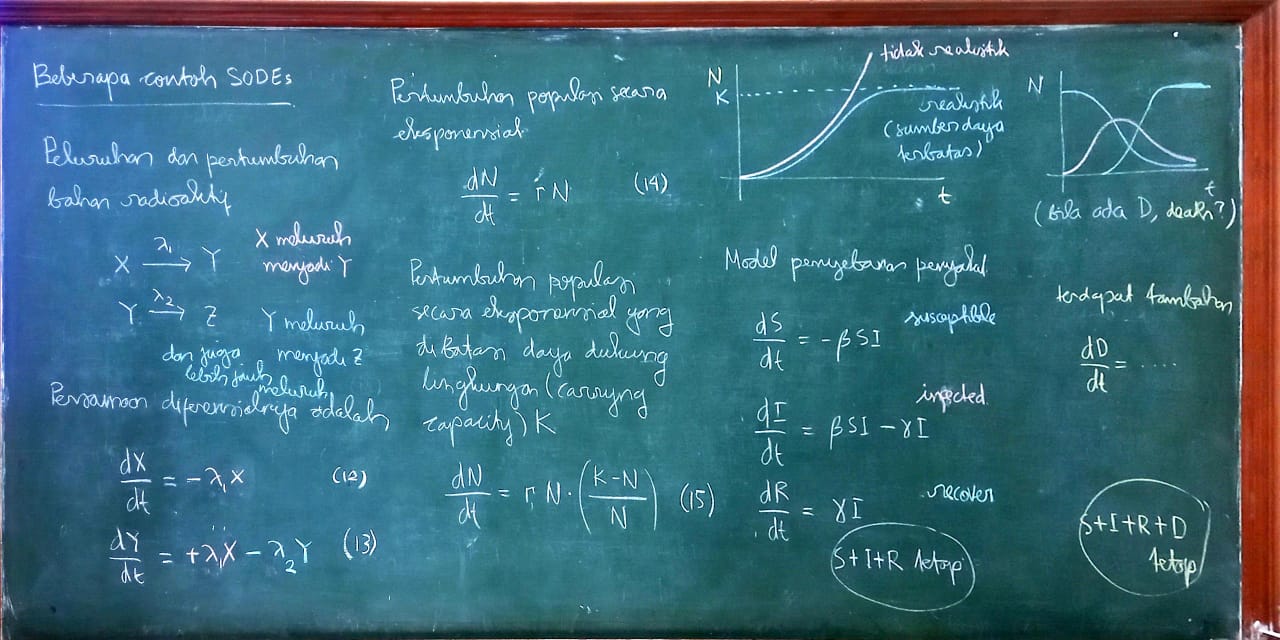 Beberapa contoh SODEs
Peluruhan dan pertumbuhan
bahan radioaktif
X λ₁→ Y X meluruh
menjadi Y
Y λ₂→ Z Y meluruh
dan juga menjadi Z
lebih jauh meluruh
Persamaan diferensialnya adalah
dX/dt = -λ₁X (12)
dY/dt = +λ₁X - λ₂Y (13)
Pertumbuhan populasi secara
eksponensial
dN/dt = rN (14)
Pertumbuhan populasi
secara eksponensial yang
dibatasi daya dukung
lingkungan (carryng
capacity) K
dN/dt = rN · ((K-N)/N) (15)
N
K
tidak realistik
realistik
(sumber daya
terbatas)
t
N
t
(bila ada D, death?)
Model penyebaran penyakit
dS/dt = -βSI susceptible
dI/dt = βSI - γI infected
dR/dt = γI recover
S+I+R tetap
terdapat tambahan
dD/dt = ....
S+I+R+D
tetap